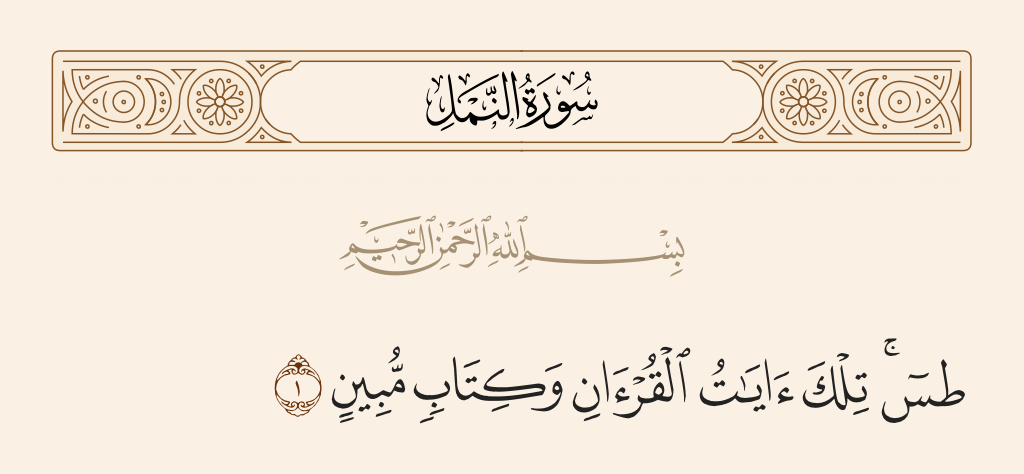 سُورَةُ النَّمْلِ
بِسْمِ ٱللَّهِ ٱلرَّحْمَٰنِ ٱلرَّحِيمِ
طسٓ ۚ تِلْكَ ءَايَـٰتُ ٱلْقُرْءَانِ وَكِتَابٍ مُّبِينٍ ١